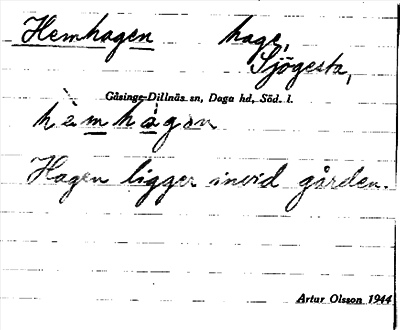 Hemhagen hage,
Sjögesta,
Gåsinge-Dillnäs sn, Daga hd, Söd. l.
hèmhágən
Hagen ligger invid gården.
Artur Olsson 1944